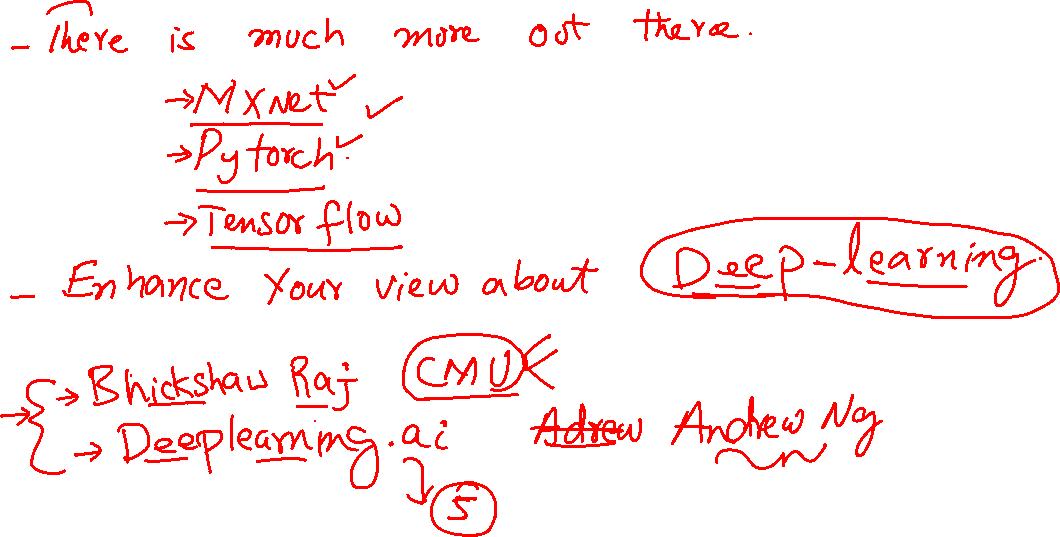 - There is much more out there.
→ MXNet
→ Pytorch
→ Tensorflow
- Enhance Your view about Deep-learning.
→ Bhickshaw Raj CMU
→ Deeplearning.ai Adrew Andrew Ng
5